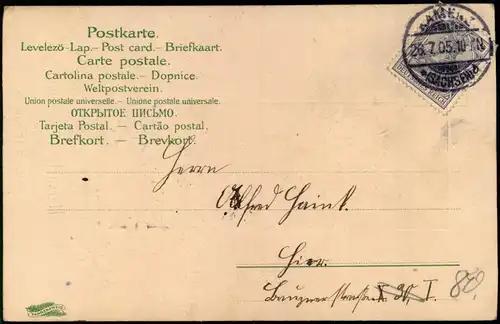 Postkarte.
Levelező-Lap. — Post card. — Briefkaart.
Carte postale.
Cartolina postale. — Dopnice.
Weltpostverein.
Union postale universelle. — Unione postale universale.
ОТКРЫТОЕ ПИСЬМО.
Tarjeta Postal. — Cartão postal.
Brefkort. — Brevkort.
KAMENZ
26.7.05.10-11N
*(SACHSEN)d
Herrn
Alfred Haink.
Hier.
Bauznerstraße 30, I.